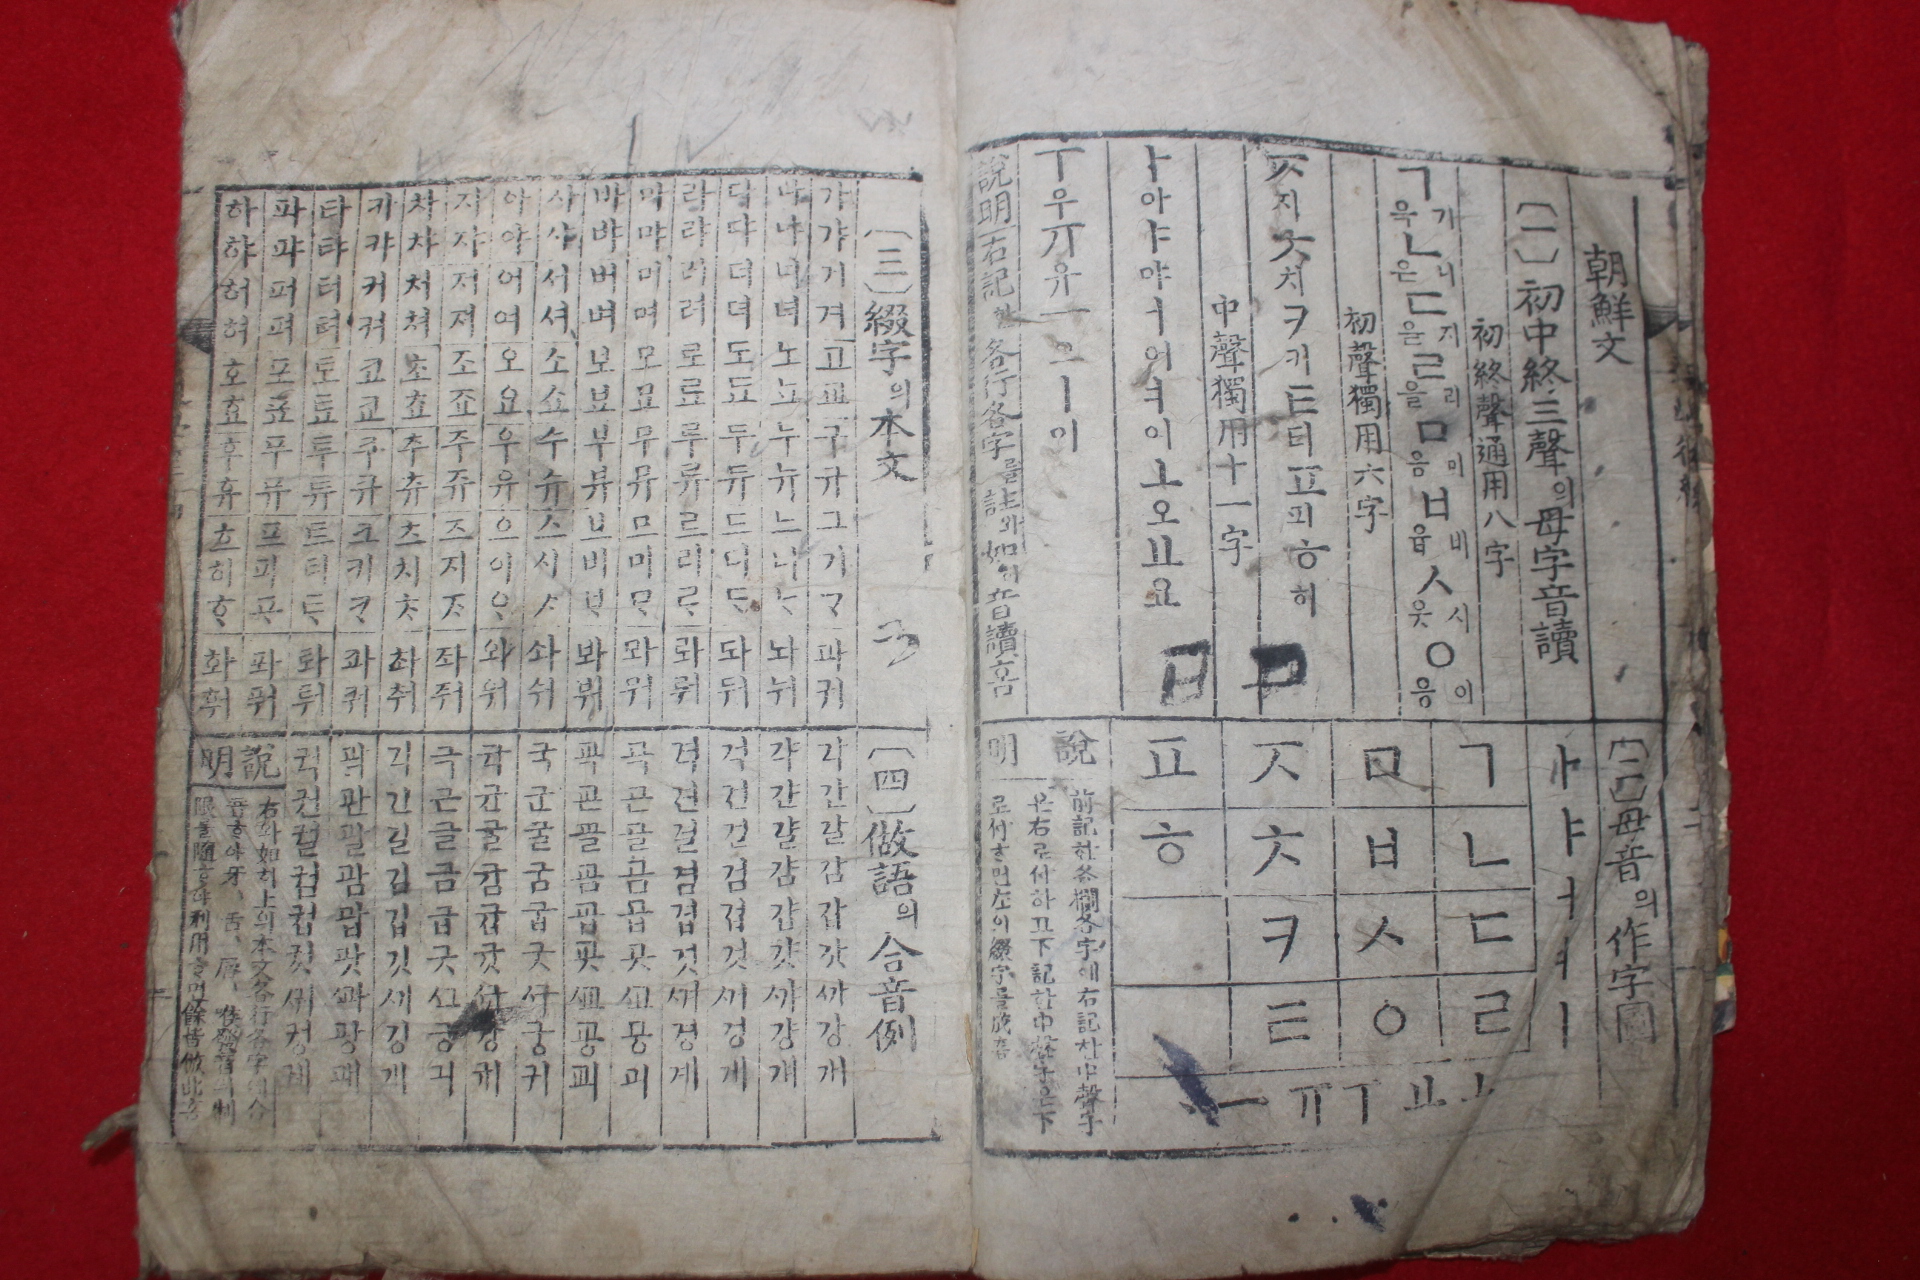 朝鮮文
(一)初中終三聲의母字音讀
初終聲通用八字
ㄱ 기 윽 ㄴ 니 은 ㄷ 지 을 ㄹ 리 을 ㅁ 미 음 ㅂ 비 읍 ㅅ 시 읏 ㅇ 이 응
初聲獨用六字
ㅈ지ㅊ치ㅋ키ㅌ티ㅍ피ㅎ히
中聲獨用十一字
ㅏ아ㅑ야ㅓ어ㅕ여ㅗ오ㅛ요
ㅜ우ㅠ유ㅡ으ㅣ이
說明 右記 各行各字를註와如히音讀홈
(二)母音의作字圖
ㅏㅑㅓㅕㅣ
ㄱㄴㄷㄹ
ㅁㅂㅅㅇ
ㅈㅊㅋㅌ
ㅍㅎ
ㅗㅛㅜㅠㅡ
說明
前記한各欄各字에右記한中聲字
은右로付하고下記한中聲字은下
로付하면左의綴字를成홈
(三)綴字의本文
가갸거겨고교구규그기ᄀᆞ과궈
나냐너녀노뇨누뉴느니ᄂᆞ놔눠
다댜더뎌도됴두듀드디ᄃᆞ돠둬
라랴러려로료루류르리ᄅᆞ롸뤄
마먀머며모묘무뮤므미ᄆᆞ뫄뭐
바뱌버벼보뵤부뷰브비ᄇᆞ봐붜
사샤서셔소쇼수슈스시ᄉᆞ솨숴
아야어여오요우유으이ᄋᆞ와워
자쟈저져조죠주쥬즈지ᄌᆞ좌줘
차챠처쳐초쵸추츄츠치ᄎᆞ촤춰
카캬커켜코쿄쿠큐크키ᄏᆞ콰쿼
타탸터텨토툐투튜트티ᄐᆞ톼퉈
파퍄퍼펴포표푸퓨프피ᄑᆞ퐈풔
하햐허혀호효후휴흐히ᄒᆞ화훠
(四)倣語의合音例
각간갈감갑갓까강개
갹갼걀걈걉걋꺄걍걔
걱건걸검겁것꺼겅게
격견결겸겹겻껴경계
곡곤골곰곱곳꼬공괴
국군굴굼굽굿꾸궁귀
극근글금급긋끄긍긔
긱긴길김깁깃끼깅
곽관괄괌괍괏꽈광괘
궉권궐궘궙궛꿔궝궤
說明
右와如히上의本文各行各字의合
音하야牙、舌、脣、
隨하야利用하며餘皆倣此홈